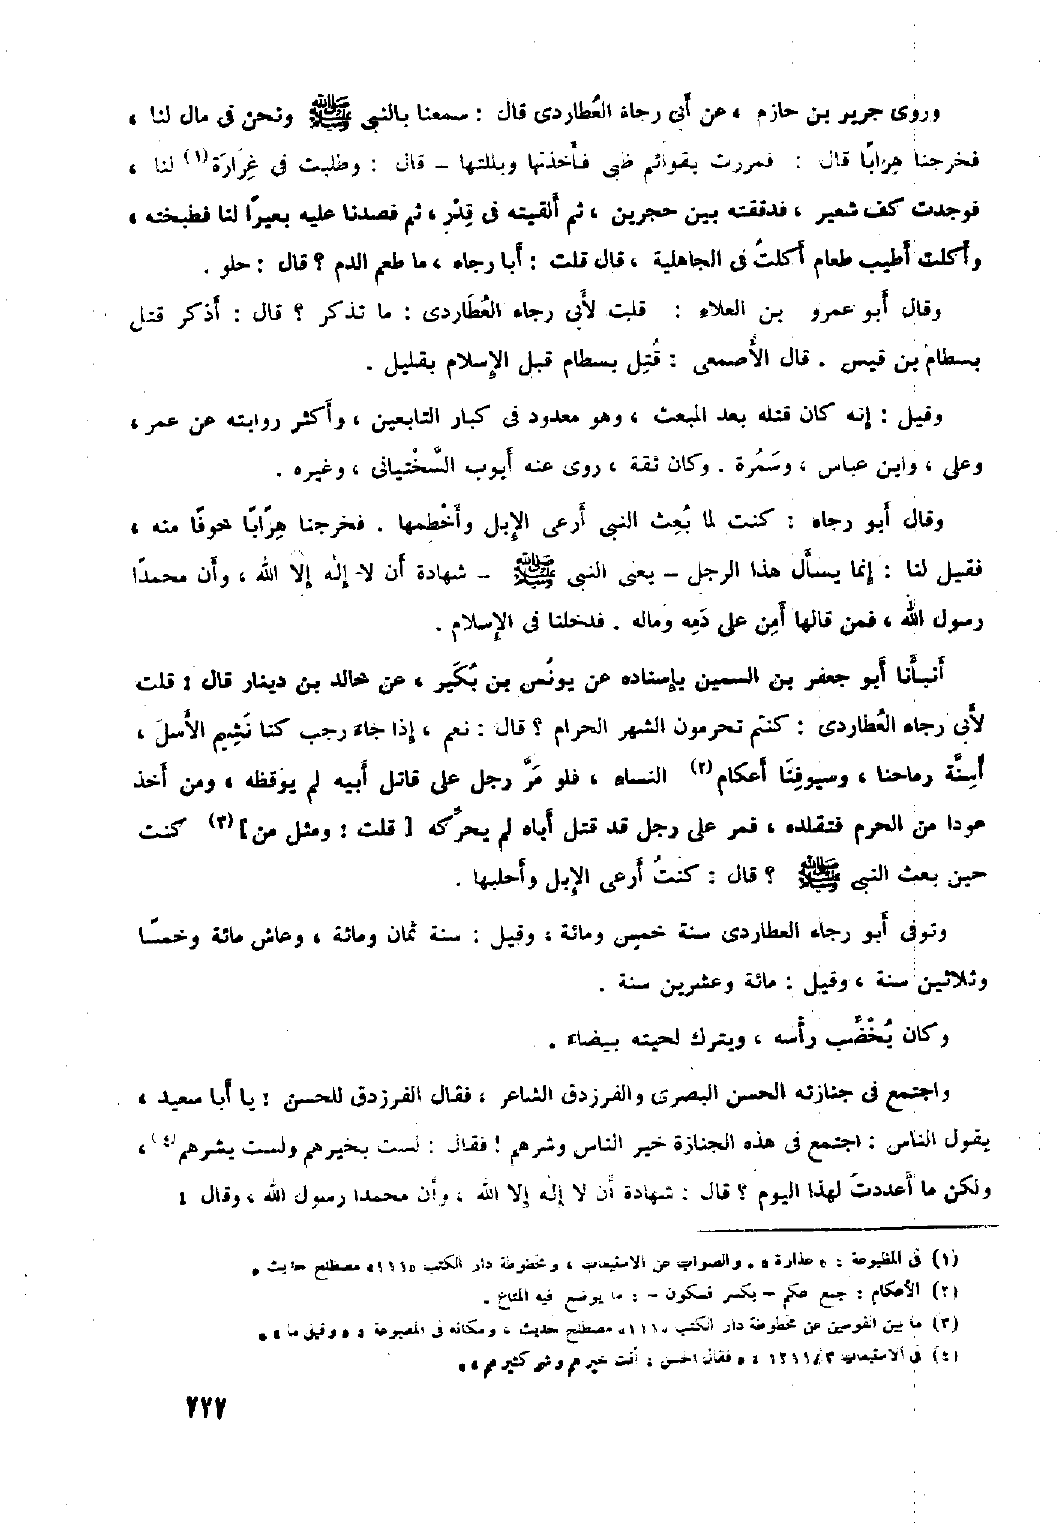 وروى جرير بن حازم ، عن أبى رجاء العُطاردى قال : سمعنا بالنبى ﷺ ونحن فى مال لنا ،
فخرجنا هِرابًا قال : فمررت بقوائم ظبى فأخذتها وبللتها – قال : وطلبت فى غِرَارَة(١) لنا ،
فوجدت كف شعير ، فدققته بين حجرين ، ثم ألقيته فى قِدْر ، ثم فصدنا عليه بعيرًا لنا فطبخته ،
وأكلت أطيب طعام أكلتُ فى الجاهلية ، قال قلت : أبا رجاء ، ما طعم الدم ؟ قال : حلو .
وقال أبو عمرو بن العلاء : قلت لأبى رجاء العُطَاردى : ما تذكر ؟ قال : أذكر قتل
بسطام بن قيس . قال الأصمعى : قُتِل بسطام قبل الإسلام بقليل .
وقيل : إنه كان قتله بعد المبعث ، وهو معدود فى كبار التابعين ، وأكثر روايته عن عمر ،
وعلى ، وابن عباس ، وسَمُرة . وكان ثقة ، روى عنه أيوب السَّخْتيانى ، وغيره .
وقال أبو رجاء : كنت لما بُعِث النبى أرعى الإبل وأخْطمها . فخرجنا هِرَابًا خوفًا منه ،
فقيل لنا : إنما يسأل هذا الرجل – يعنى النبى ﷺ – شهادة أن لا إله إلا الله ، وأن محمدًا
رسول الله ، فمن قالها أمِن على دَمِه وماله . فدخلنا فى الإسلام .
أنبأنا أبو جعفر بن السمين بإسناده عن يونُس بن بُكَير ، عن خالد بن دينار قال : قلت
لأبى رجاء العُطاردى : كنتم تحرمون الشهر الحرام ؟ قال : نعم ، إذا جاء رجب كنا نَشِيم الأسلَ ،
أسِنَّة رماحنا ، وسيوفنَا أعكام(٢) النساء ، فلو مَرَّ رجل على قاتل أبيه لم يوقظه ، ومن أخذ
عودا من الحرم فتقلده ، فمر على رجل قد قتل أباه لم يحرِّكه [ قلت : ومثل من ](٣) كنت
حين بعث النبى ﷺ ؟ قال : كنتُ أرعى الإبل وأحلبها .
وتوفى أبو رجاء العطاردى سنة خمس ومائة ، وقيل : سنة ثمان ومائة ، وعاش مائة وخمسًا
وثلاثين سنة ، وقيل : مائة وعشرين سنة .
وكان يُخْضَب رأسه ، ويترك لحيته بيضاء .
واجتمع فى جنازته الحسن البصرى والفرزدق الشاعر ، فقال الفرزدق للحسن : يا أبا سعيد ،
يقول الناس : اجتمع فى هذه الجنازة خير الناس وشرهم ! فقال : لست بخيرهم ولست بشرهم(٤) ،
ولكن ما أعددتَ لهذا اليوم ؟ قال : شهادة أن لا إله إلا الله ، وأن محمدا رسول الله ، وقال :
(١) فى المطبوعة : « عذارة » . والصواب عن الاستيعاب ، ومخطوطة دار الكتب «١١١» مصطلح حديث .
(٢) الأعكام : جمع عكم – بكسر فسكون – : ما يوضع فيه المتاع .
(٣) ما بين القوسين عن مخطوطة دار الكتب «١١١» مصطلح حديث ، ومكانه فى المطبوعة : « وقيل ما » .
(٤) فى الاستيعاب ١٢١١/٣ : « فقال الحسن : أنت خيرهم وشر كثيرهم » .
٢٢٧